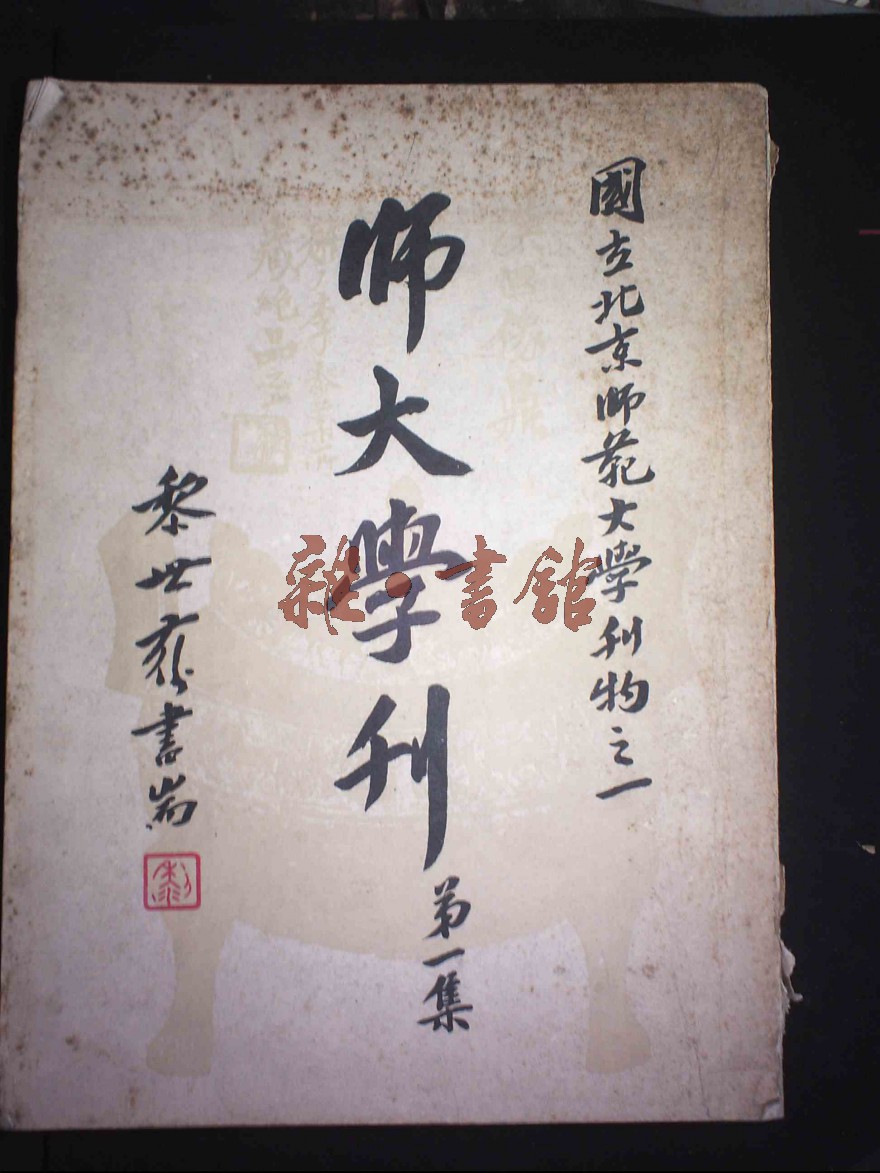 國立北京師范大學刊物之一
師大學刊
第一集
黎世蘅書耑
黎
雜·書館